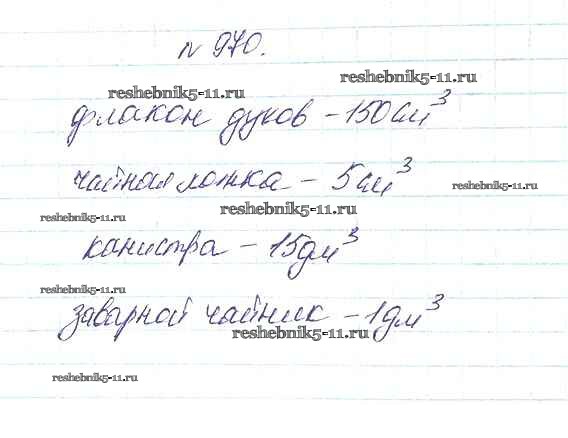 № 970.
reshebnik5-11.ru
reshebnik5-11.ru
флакон духов – 150 см³
чайная ложка – 5 см³
reshebnik5-11.ru
reshebnik5-11.ru
reshebnik5-11.ru
канистра – 15 дм³
reshebnik5-11.ru
заварной чайник – 1 дм³
reshebnik5-11.ru
reshebnik5-11.ru